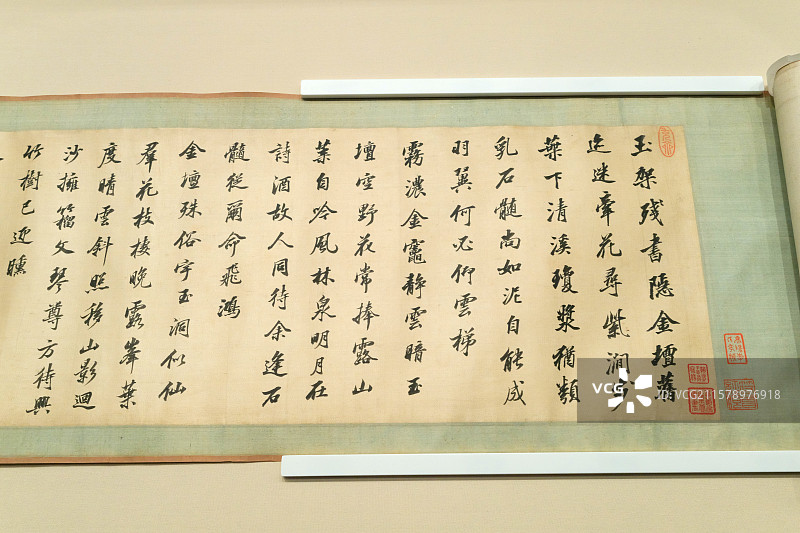 玉架殘書隱金壇舊
迹迷牽花尋紫澗步
葉下清溪瓊漿猶類
乳石髓尚如泥自能成
羽翼何必仰雲梯
霧濃金竈靜雲暗玉
壇空野花常捧露山
葉自吟風林泉明月在
詩酒故人同待余逢石
髓從爾命飛鴻
金壇殊俗宇玉洞似仙
羣花枝棲晚露峯葉
度晴雲斜照移山影迴
沙擁籀文琴尊方待興
竹樹已迎曛
VCG
VCG211578976918